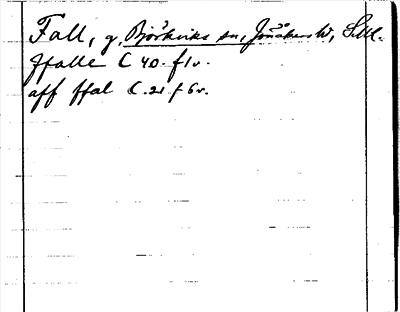 Fall, g, Björkviks sn, Jönåkers hd, Sdl.
ffalle C 40. f 1v.
aff ffal C. 21 f 6v.